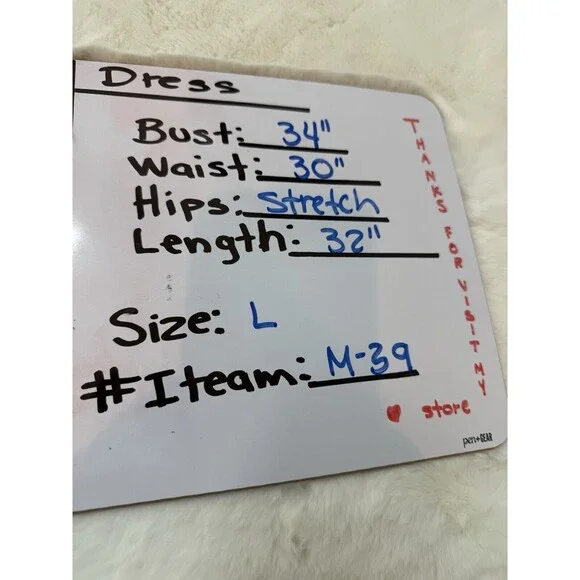 Dress
Bust: 34"
Waist: 30"
Hips: stretch
Length: 32"
Size: L
#Iteam: M-39
THANKS FOR VISIT MY
♥ store
pen+GEAR